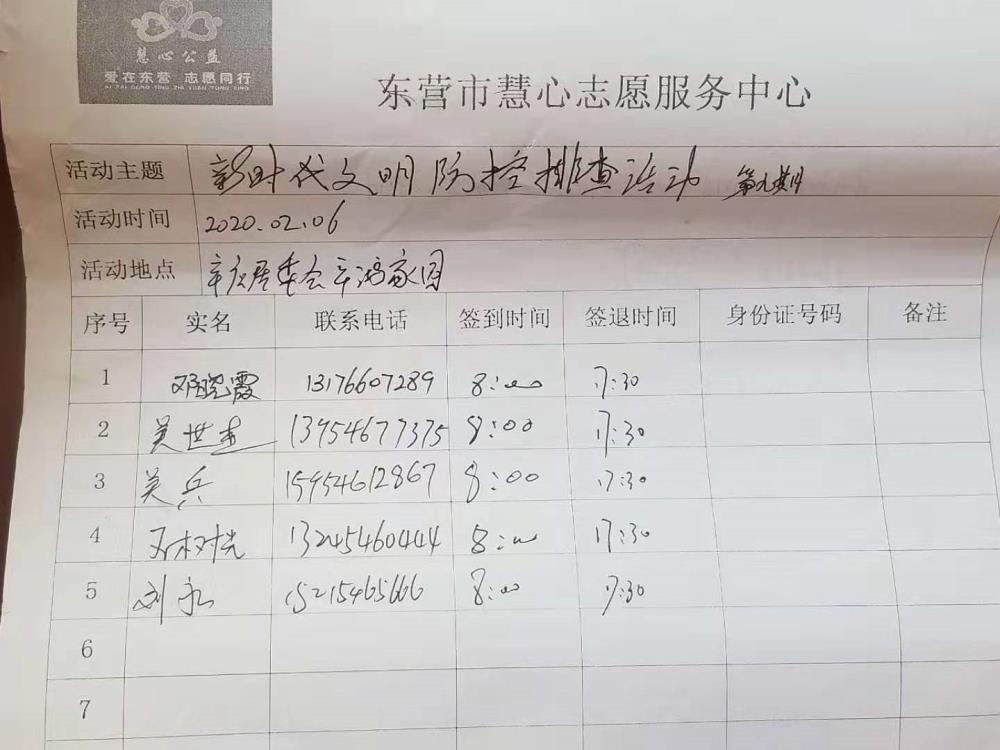 慧心公益
爱在东营 志愿同行
AI ZAI DONG YING ZHI YUAN TONG XING
东营市慧心志愿服务中心
活动主题 新时代文明防控排查活动 第九期
活动时间 2020.02.06
活动地点 辛庄居委会辛鸿家园
序号 实名 联系电话 签到时间 签退时间 身份证号码 备注
1 邓晓霞 13176607289 8:00 17:30
2 吴世 13954677375 8:00 17:30
3 吴兵 15954612867 8:00 17:30
4 树光 13245460444 8:00 17:30
5 刘永 15215465666 8:00 17:30
6
7